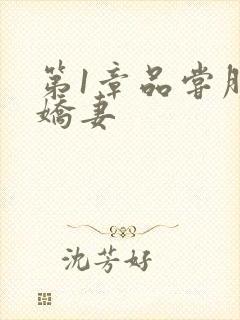 第1章品尝
娇妻
沈芳好